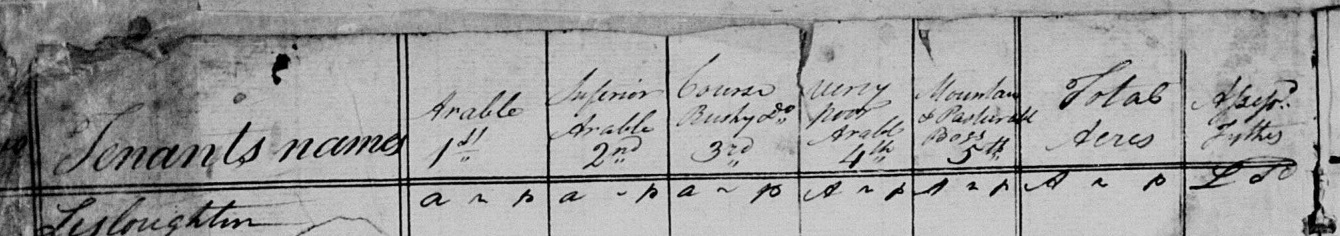 Tenants names
Arable
1st
Inferior
Arable
2nd
Course
Rushy Do
3rd
Very
Poor
Arable
4th
Mountain
& Pasturable
Bogg
5th
Total
Acres
Assessd
Tythes
a r p a r p a r p A r p A r p A r p L S d
Lisloughtin